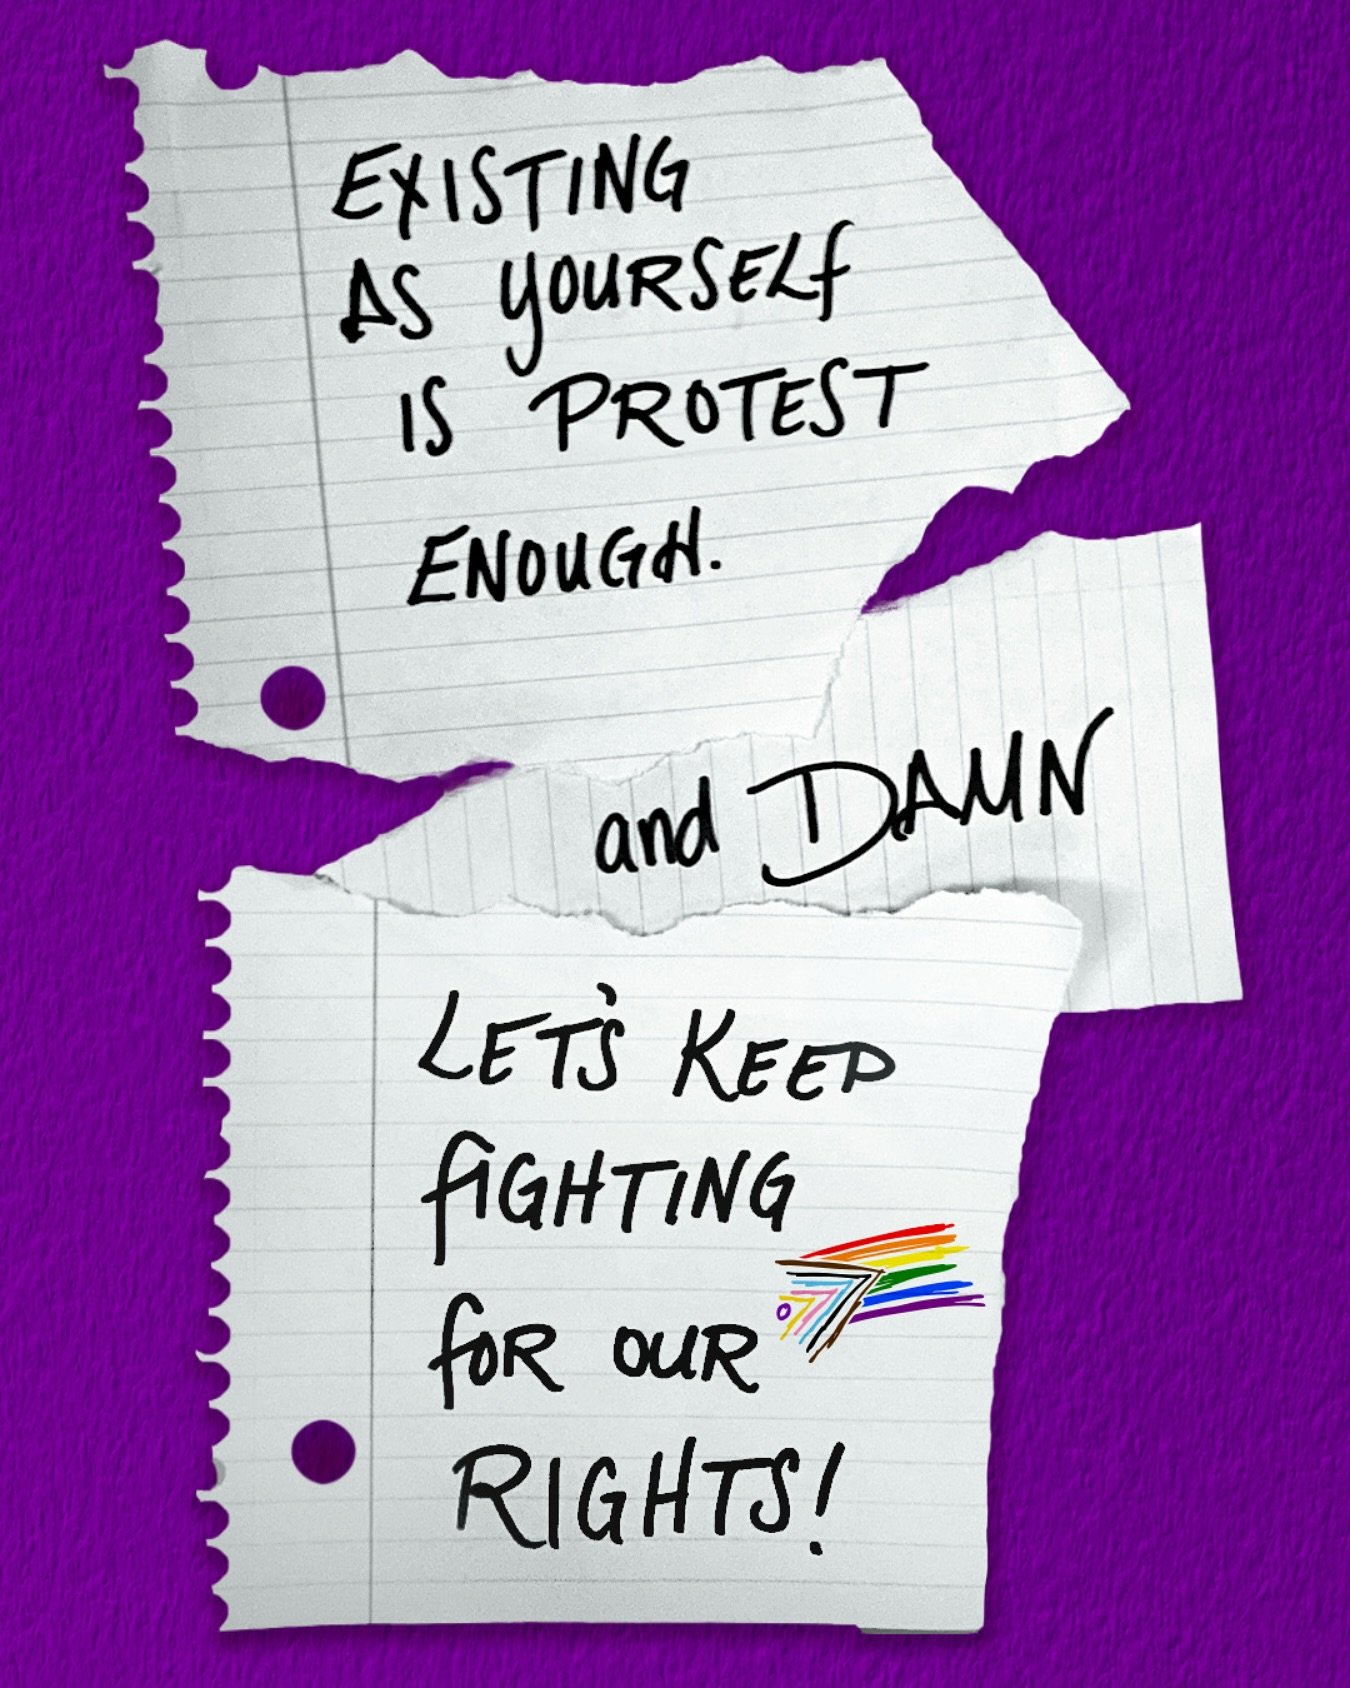 EXISTING
AS YOURSELf
IS PROTEST
ENOUGH.
and DAMN
LET'S KEEP
fIGHTING
foR OUR
RIGHTS!